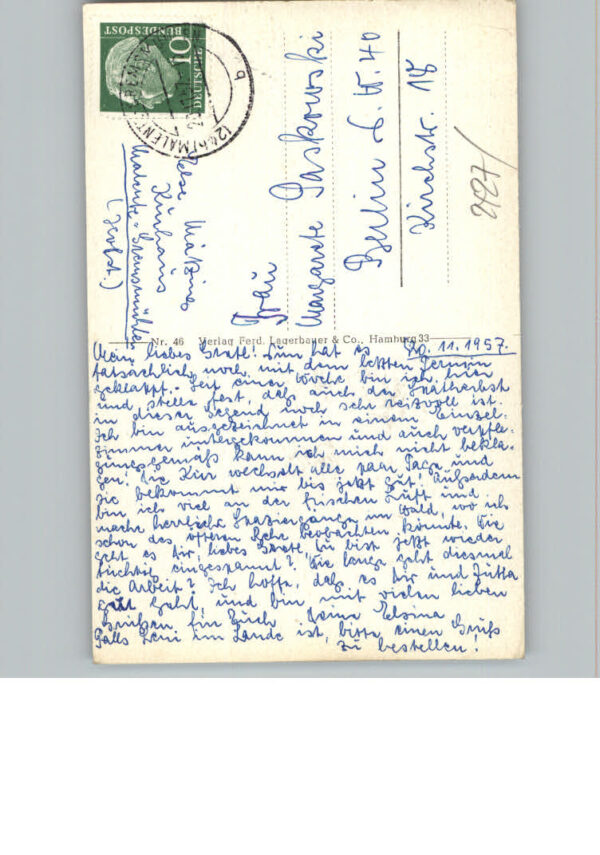 10
DEUTSCHE
BUNDESPOST
(24b) MALENTE
b
Else
Kurhaus
Malente-Gremsmühlen
(Holst.)
Frau
Margarete Paskowski
Berlin N.W. 40
Kirchstr. 18
2127/
Nr. 46 Verlag Ferd. Lagerbauer & Co., Hamburg 33
20. 11. 1957.
Mein liebes Gretel! Nun hat es
tatsächlich noch mit dem letzten Termin
geklappt. Seit einer Woche bin ich hier
und stelle fest, daß auch der Spätherbst
in dieser Gegend noch sehr reizvoll ist.
Ich bin ausgezeichnet in einem Einzel-
zimmer untergekommen und auch verpfle-
gungsgemäß kann ich mich nicht bekla-
gen. Die Kur wechselt alle paar Tage und
sie bekommt mir bis jetzt gut. Außerdem
bin ich viel an der frischen Luft und
mache herrliche Spaziergänge im Wald, wo ich
schon des öfteren Rehe beobachten konnte. Wie
geht es Dir, liebes Grete, Du bist jetzt wieder
tüchtig eingespannt? Wie lange geht diesmal
die Arbeit? Ich hoffe, daß es Dir und Jutta
gut geht, und bin mit vielen lieben
Grüßen für Euch Deine
Falls im Lande ist, bitte einen Gruß
zu bestellen!